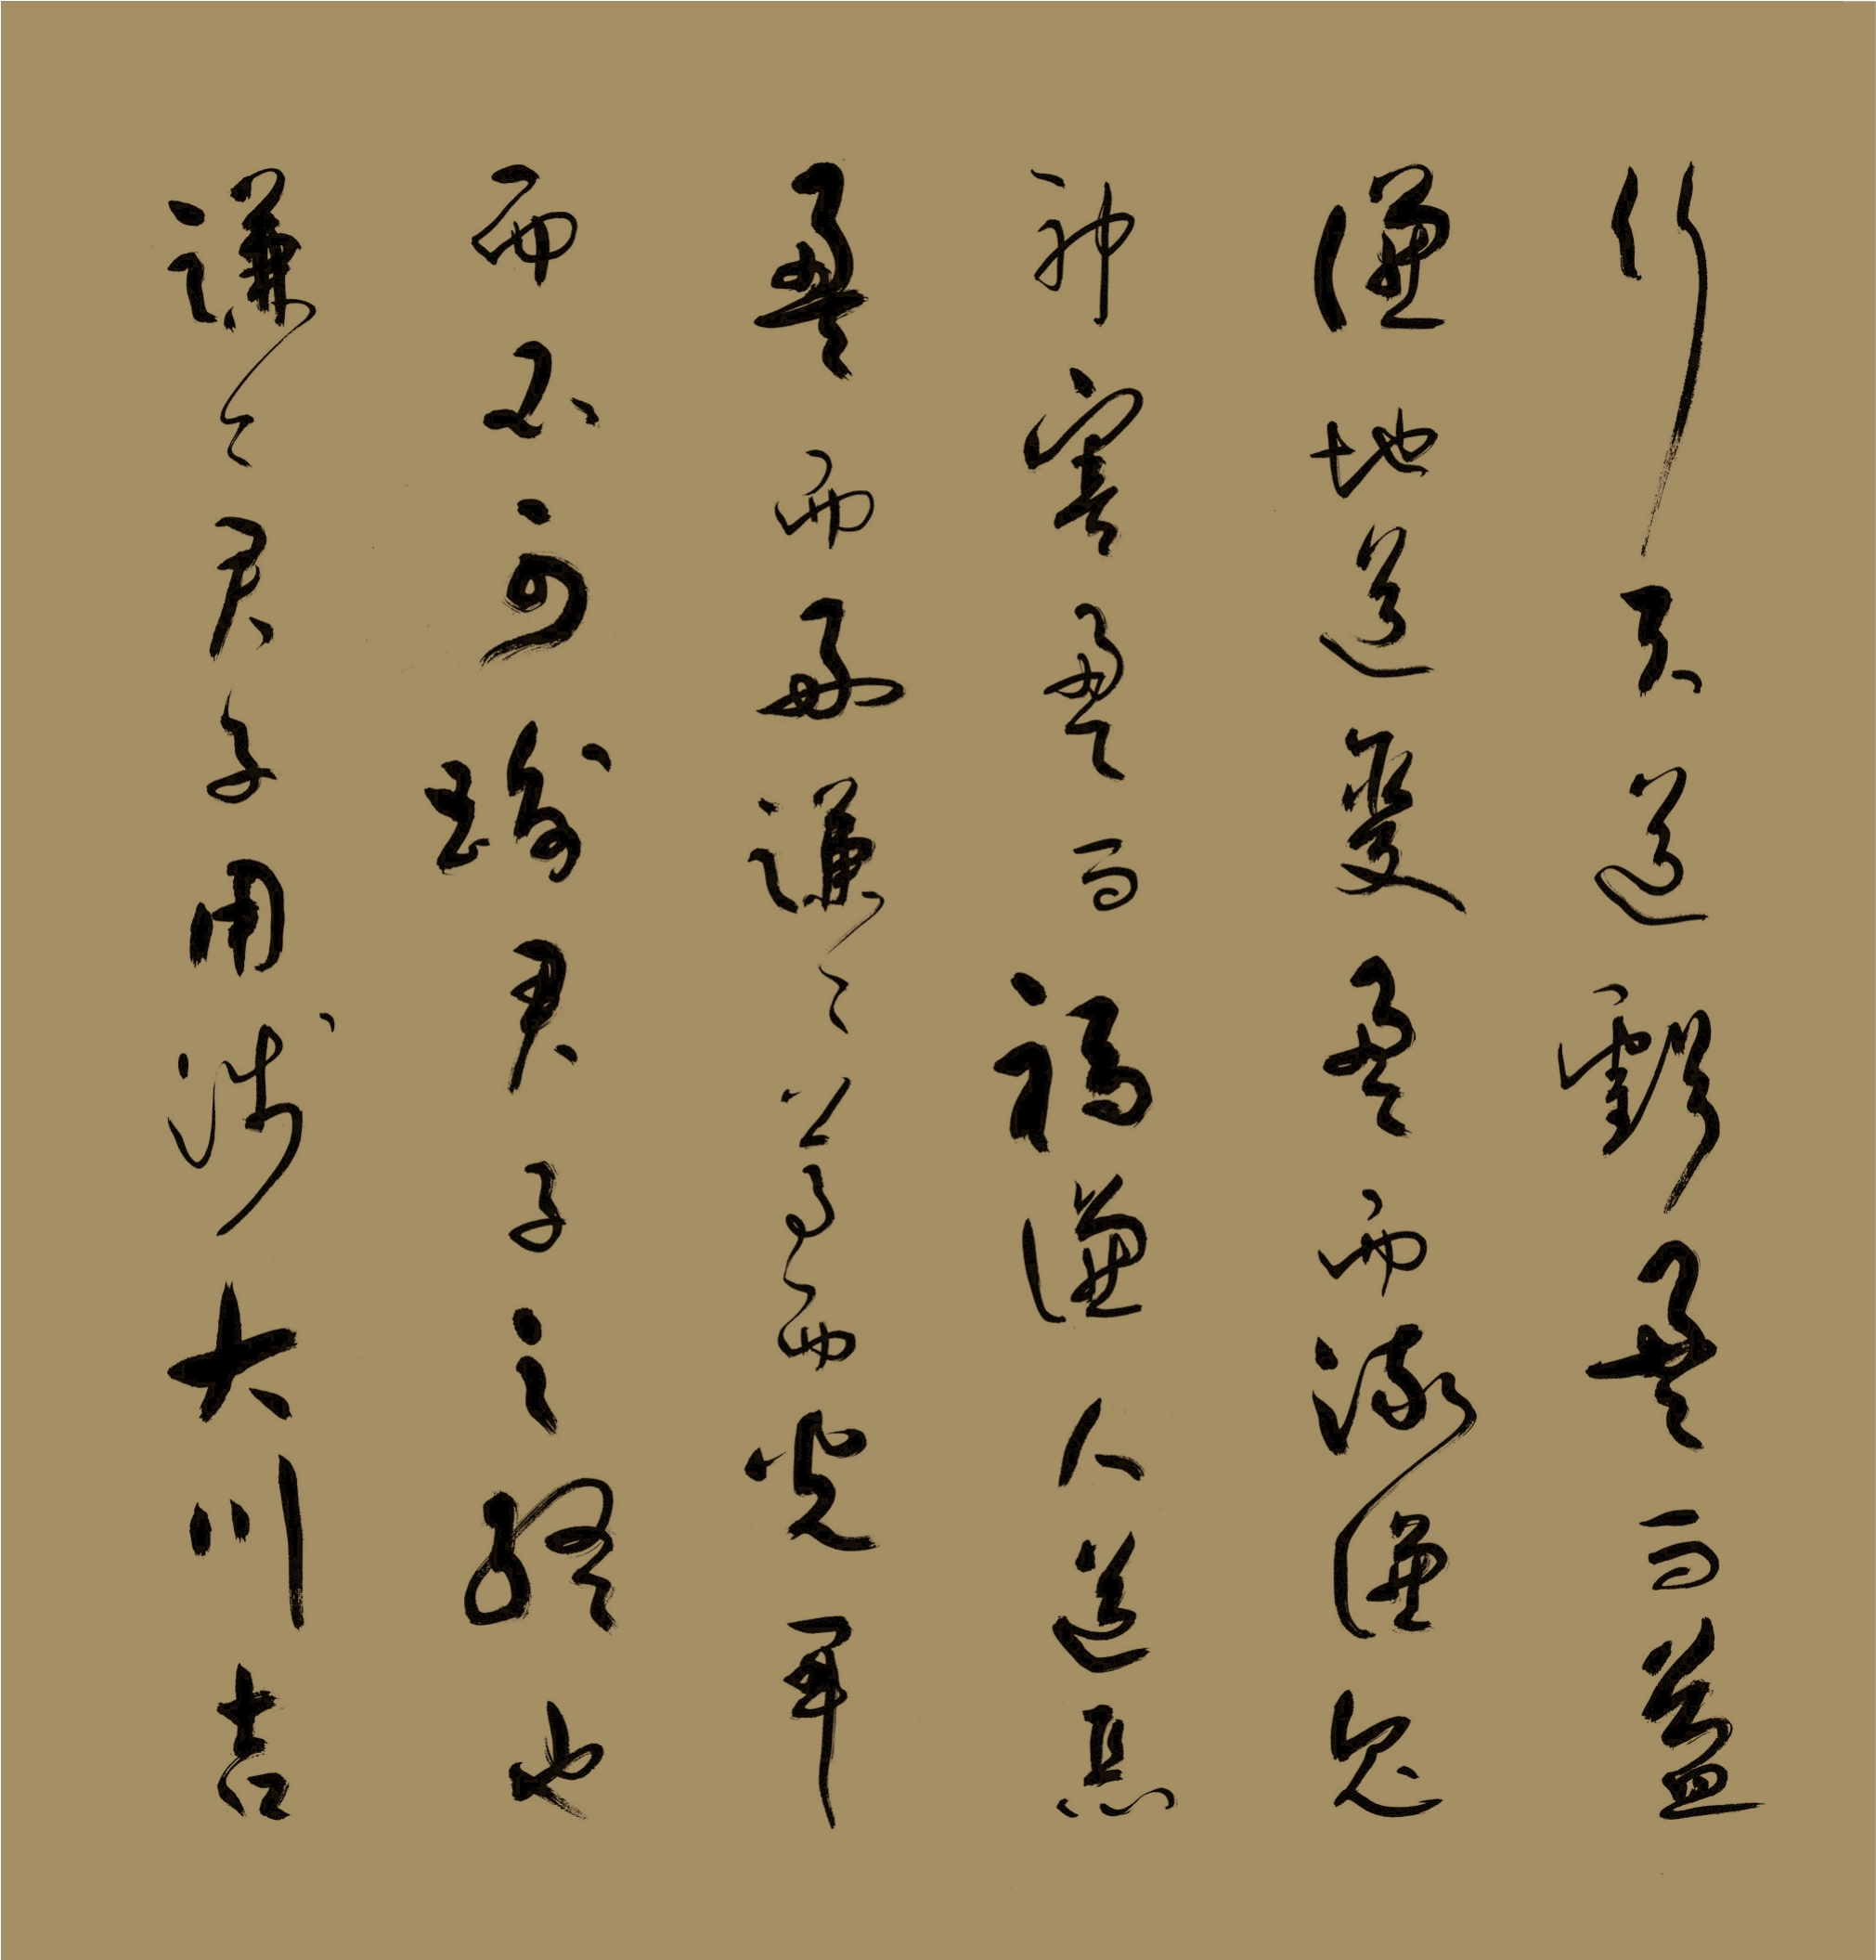 行天道虧盈而益
謙地道變盈而流謙鬼
神害盈而福謙人道惡
盈而好謙謙尊而光卑
而不可踰君子之終也
謙謙君子用涉大川吉